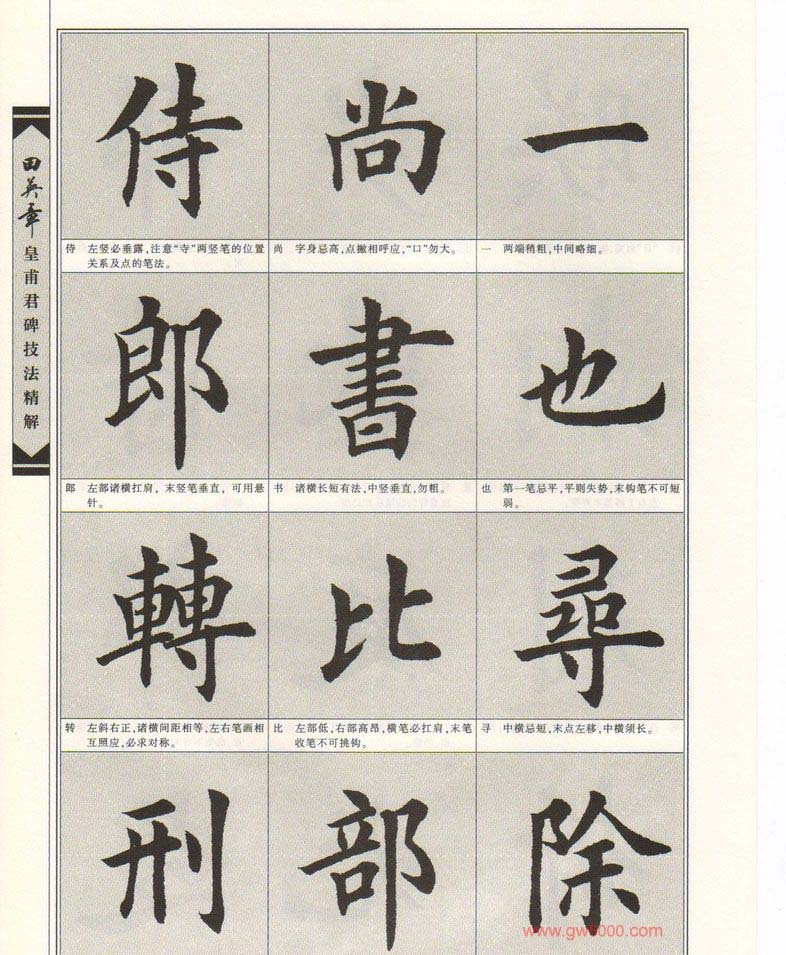 田英章
皇甫君碑技法精解
侍
尚
一
侍 左竖必垂露,注意“寺”两竖笔的位置
关系及点的笔法。
尚 字身忌高,点撇相呼应,“口”勿大。
一 两端稍粗,中间略细。
郎
書
也
郎 左部诸横扛肩,末竖笔垂直,可用悬
针。
书 诸横长短有法,中竖垂直,勿粗。
也 第一笔忌平,平则失势,末钩笔不可短
弱。
轉
比
尋
转 左斜右正,诸横间距相等,左右笔画相
互照应,必求对称。
比 左部低,右部高昂,横笔必扛肩,末笔
收笔不可挑钩。
寻 中横忌短,末点左移,中横须长。
刑
部
除
www.gw5000.com